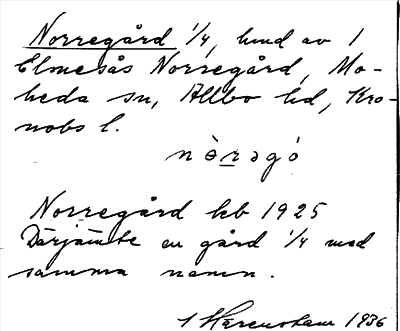 Norregård 1/4, hmd av 1
Elmesås Norregård, Mo-
heda sn, Allbo hd, Kro-
nobs l.
nòrəgó
Norregård kb 1925
Därjämte en gård 1/4 med
samma namn.
1936